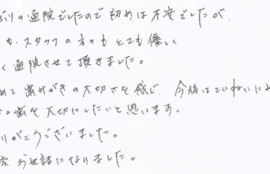 ぶりの通院でしたので初めは不安でしたが、
も、スタッフの方々もとても優しく
く通院させて頂きました。
めて歯みがきの大切さを感じ、今後はていねいにみ
の歯を大切にしたいと思います。
りがとうございました。
お世話になりました。